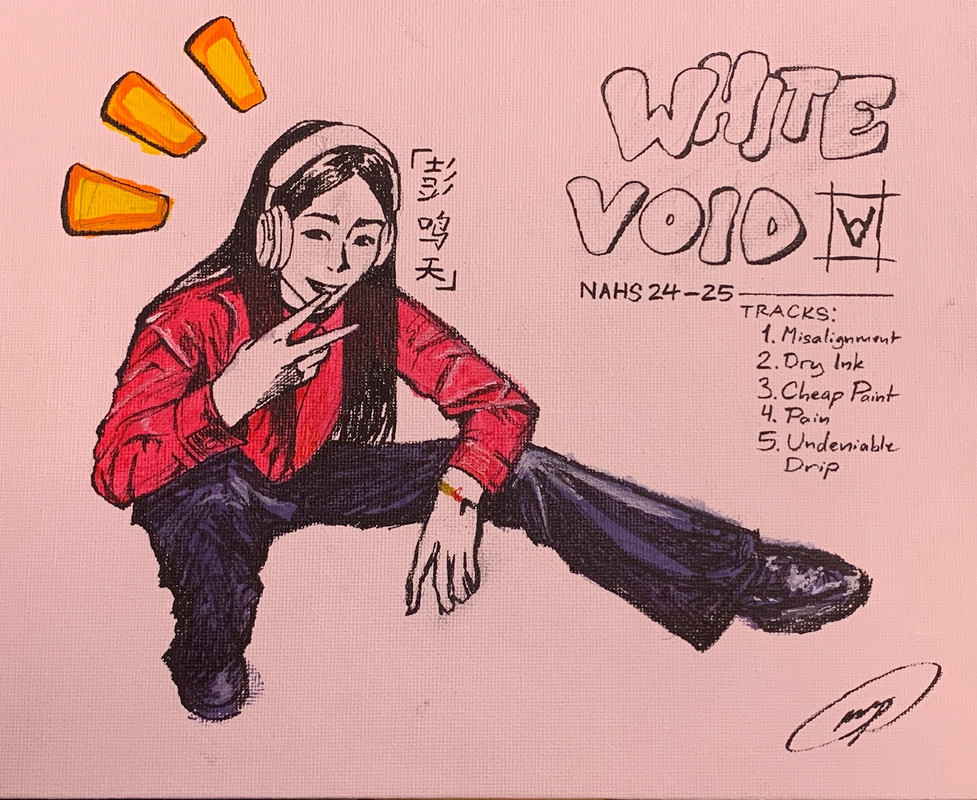 「彭
鸣
天」
WHITE
VOID
W
NAHS 24-25
TRACKS:
1. Misalignment
2. Dry Ink
3. Cheap Paint
4. Pain
5. Undeniable
Drip